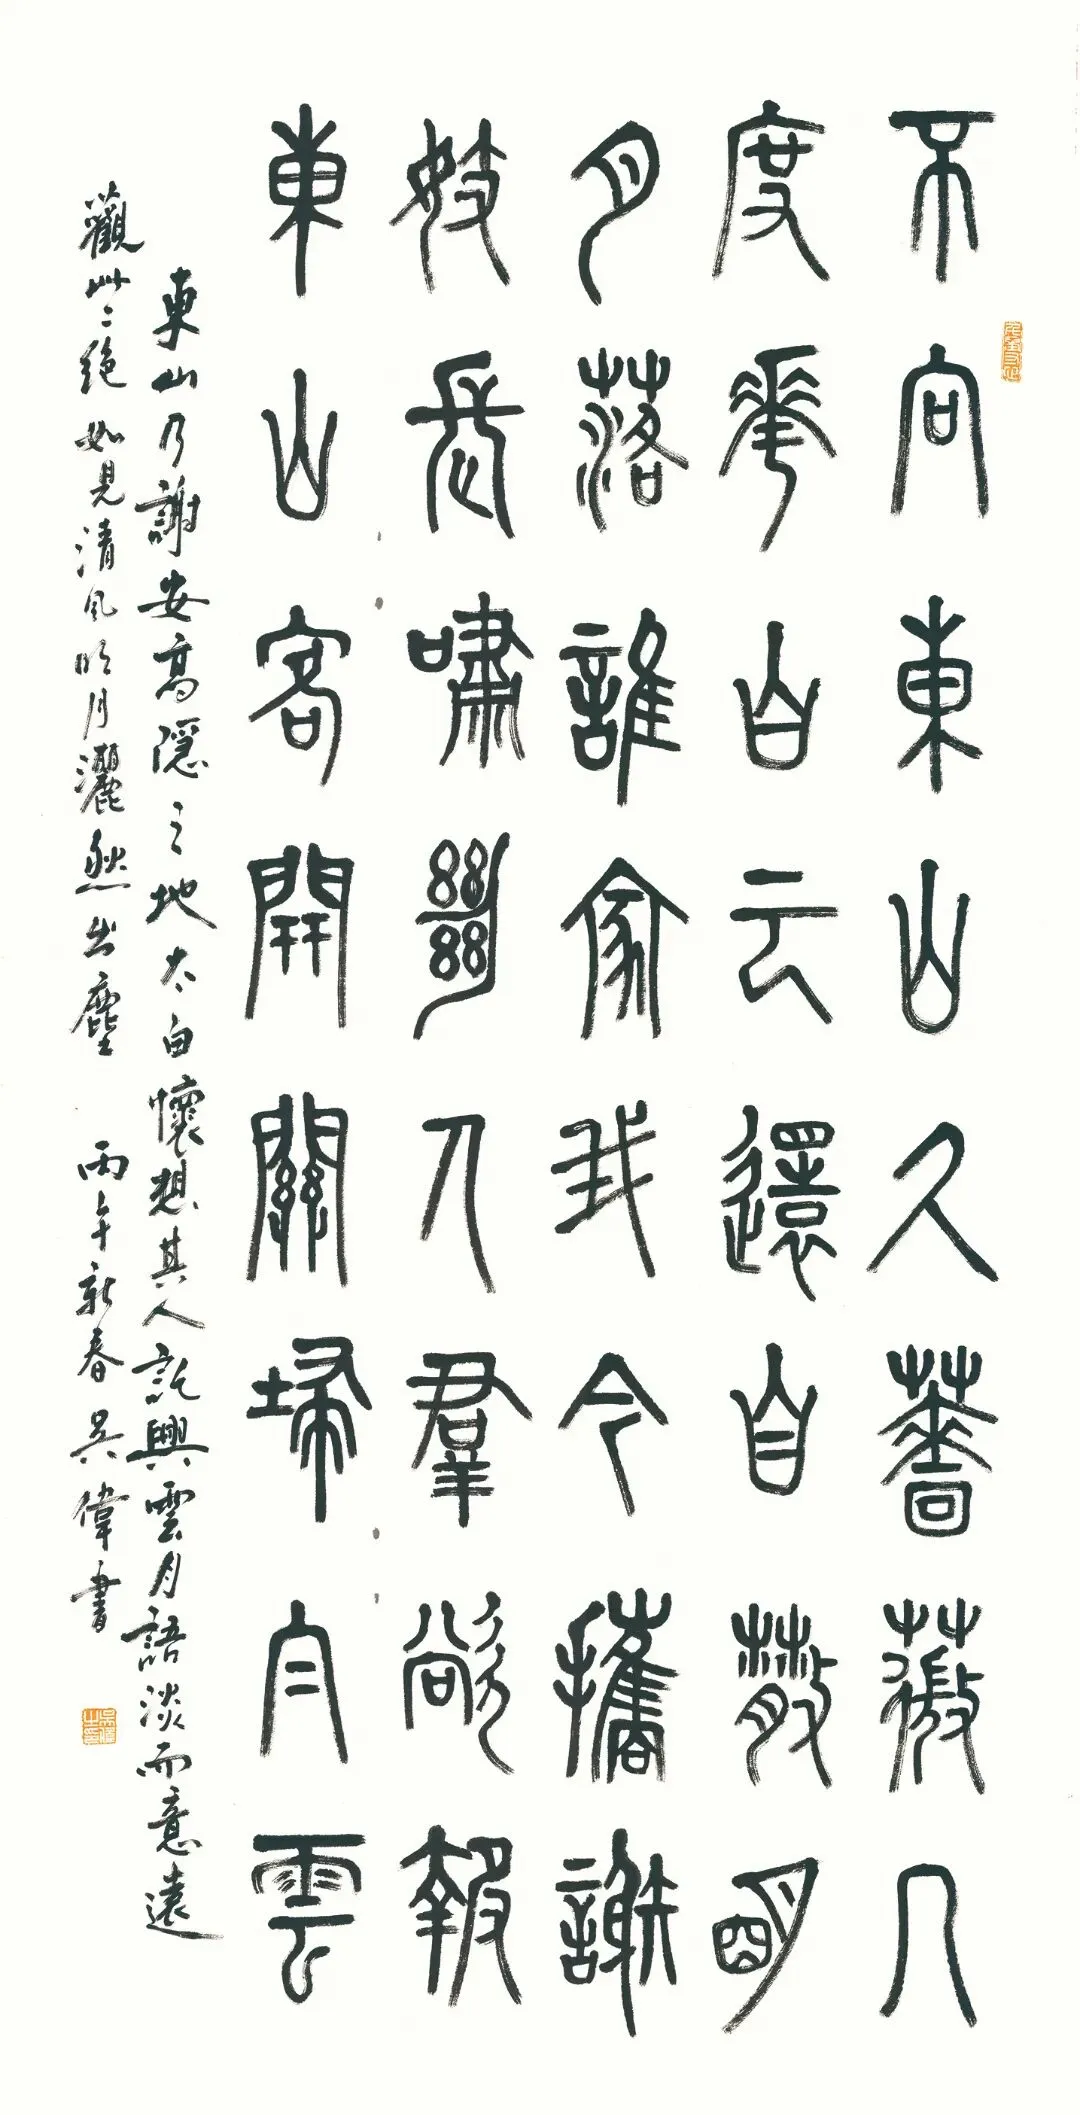 不向東山久薔薇几
度華白云還自散明
月落誰家我今攜謝
妓長嘯絕人羣欲報
東山客開關埽白雲
東山乃謝安高隱之地太白懷想其人託興雲月語淡而意遠
觀此二絕如見清風明月灑然出塵 丙午新春吳偉書
吳偉之印